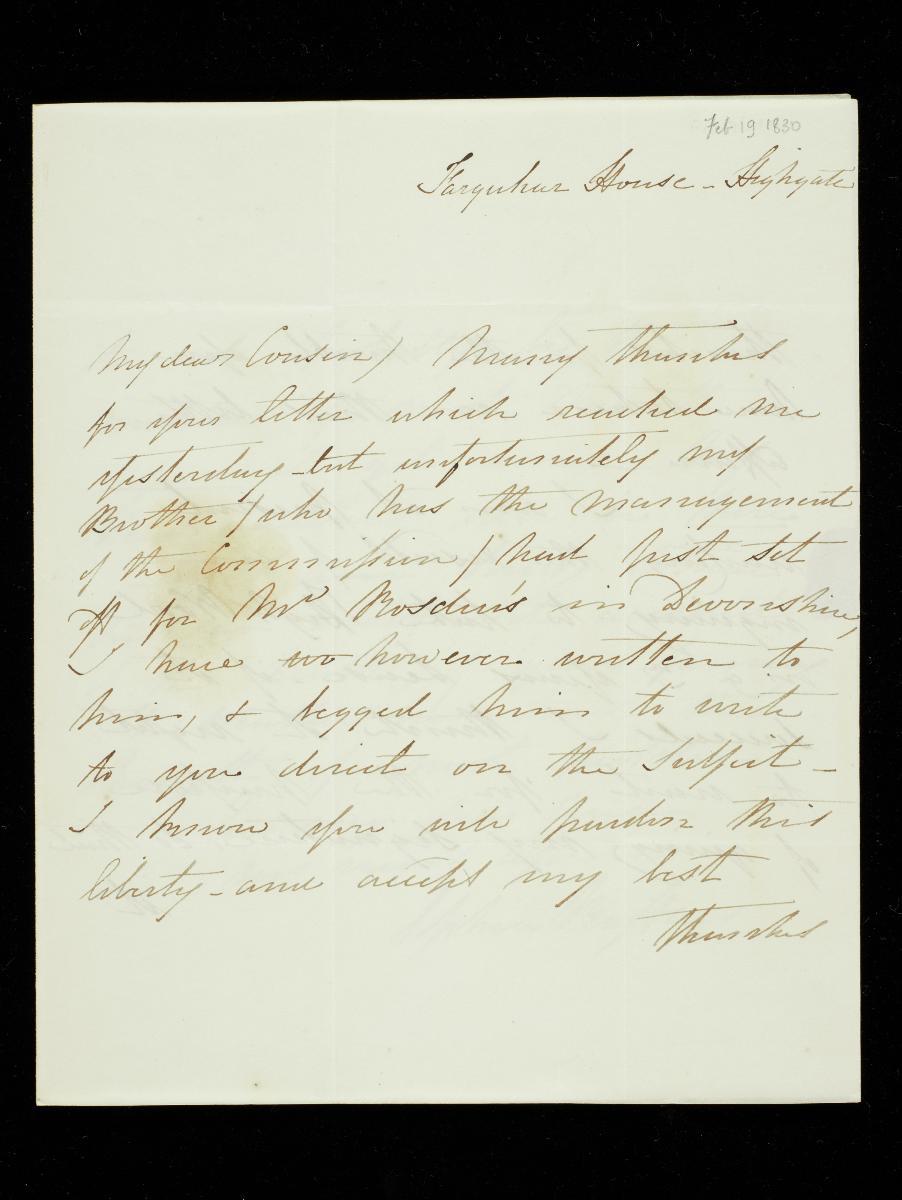 Feb 19 1830
Farquhar House - Highgate
My dear Cousin / Many thanks
for your letter which reached me
yesterday - but unfortunately my
Brother / who has the management
of the Commission / had just set
off for Mr Rosdew's in Devonshire,
I have wr however written to
him, & begged him to write
to you direct on the subject -
I know you will pardon this
liberty - and accept my best
thanks